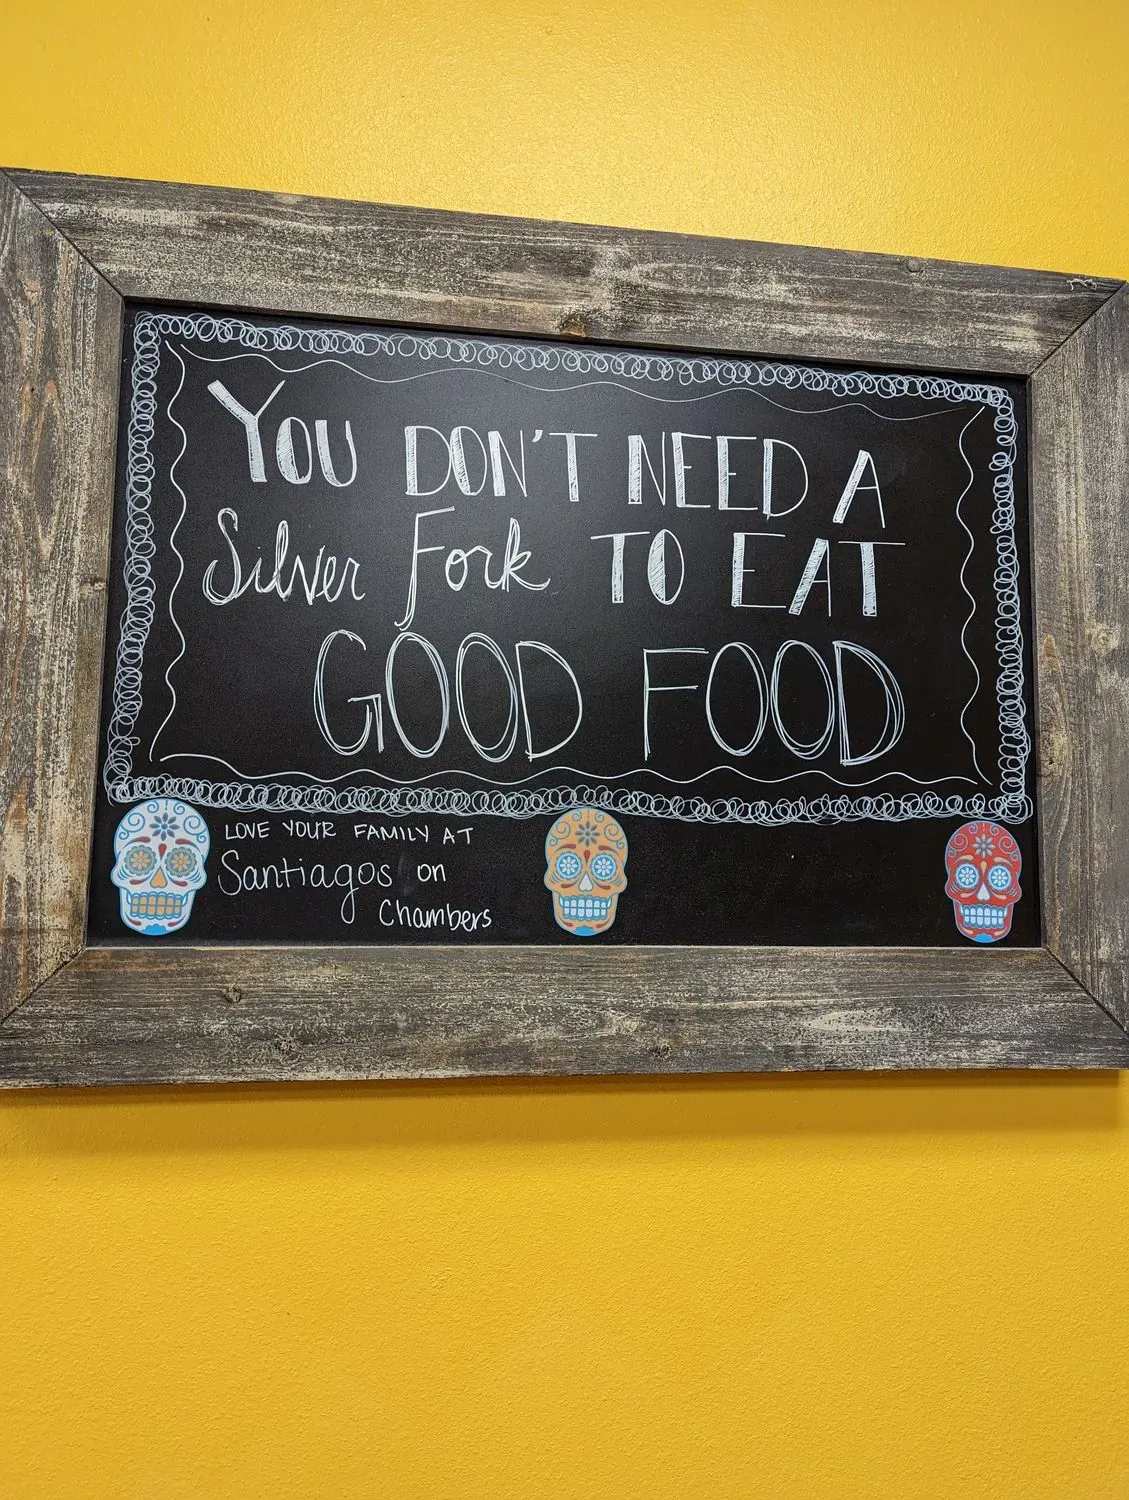 YOU DON'T NEED A
Silver Fork TO EAT
GOOD FOOD
LOVE YOUR FAMILY AT
Santiagos on
Chambers